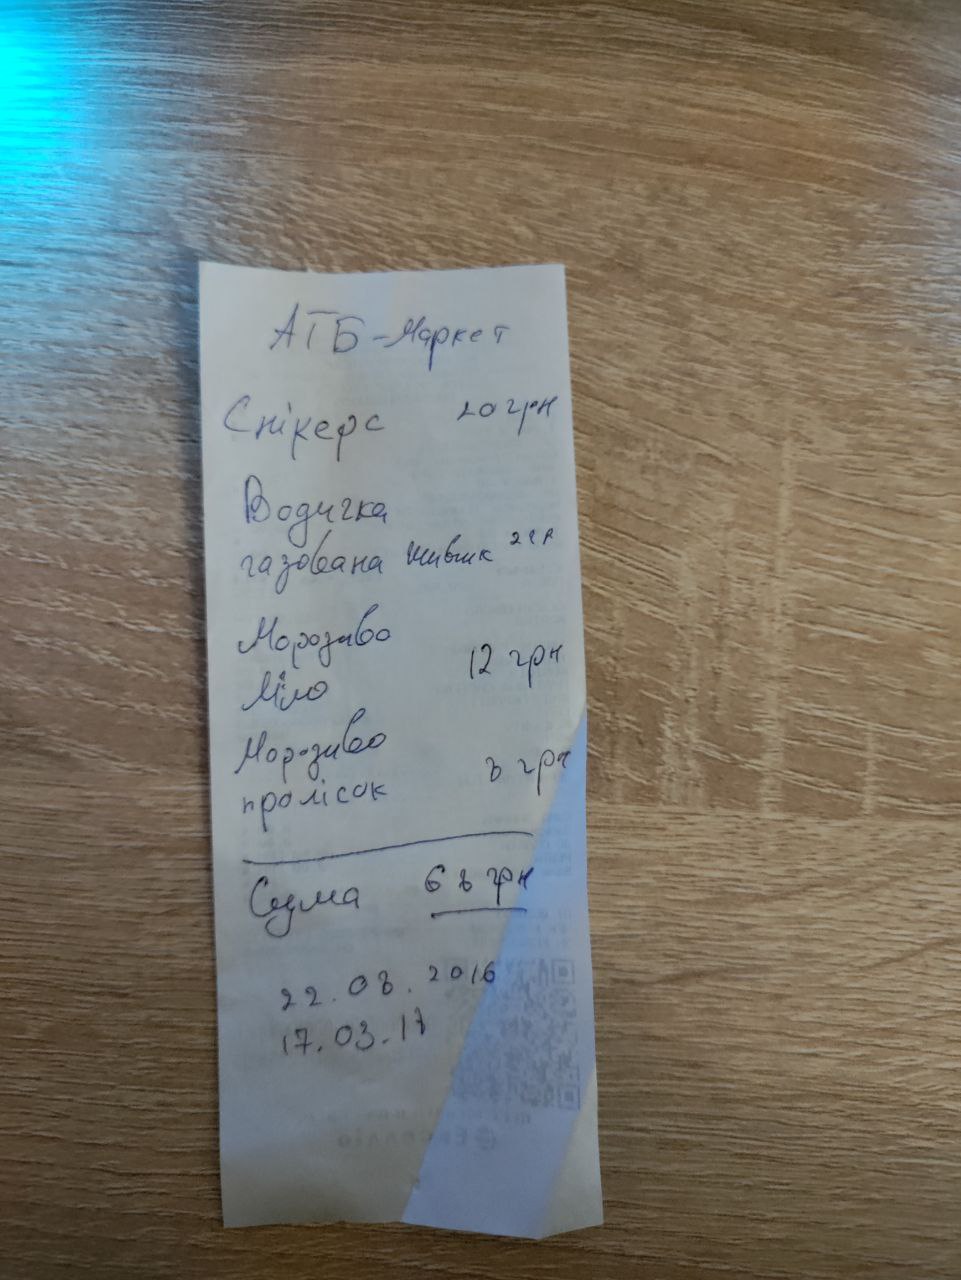 АТБ-Маркет
Снікерс 20 грн
Водичка
газована Живчик
Морозиво
Міло 12 грн
Морозиво
пролісок 8 грн
Сума 68 грн
22.08.2016
17.03.17